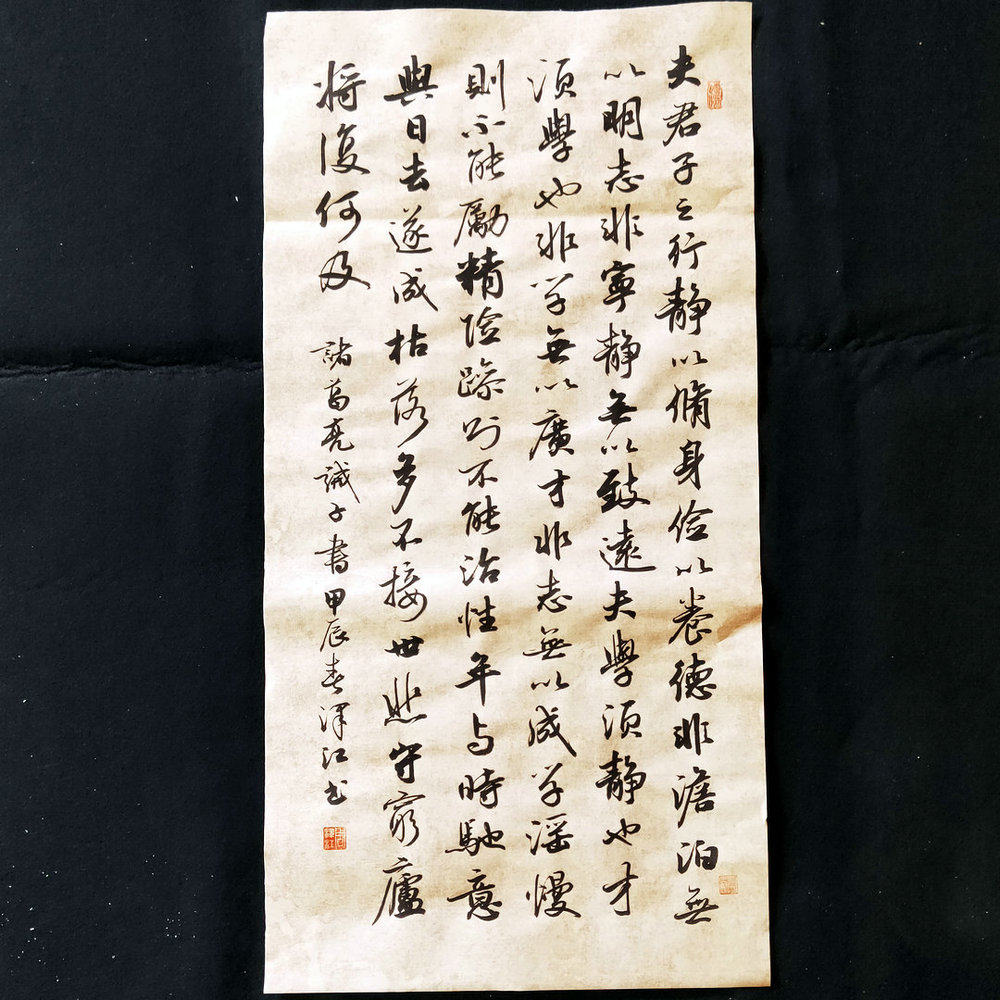 夫君子之行静以脩身俭以养德非澹泊無
以明志非寧静無以致遠夫學須静也才
須學也非学無以廣才非志無以成学滛慢
則不能勵精险躁则不能治性年与時馳意
與日去遂成枯落多不接世悲守窮廬
将復何及
諸葛亮誡子書甲辰春澤江书